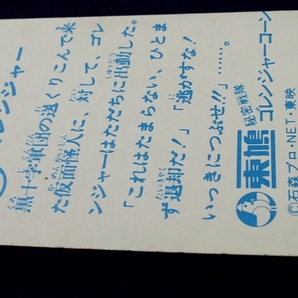 レンジャー
黒十字軍団の送りこんで来
た仮面怪人に、対して、ゴレ
ンジャーはただちに出動した。
「これはたまらない、ひとま
ず退却だ!」「逃がすな!
いっきにつぶせ!!」……。
東鳩
秘密戦隊
ゴレンジャーコーン
©石森プロ・NET・東映